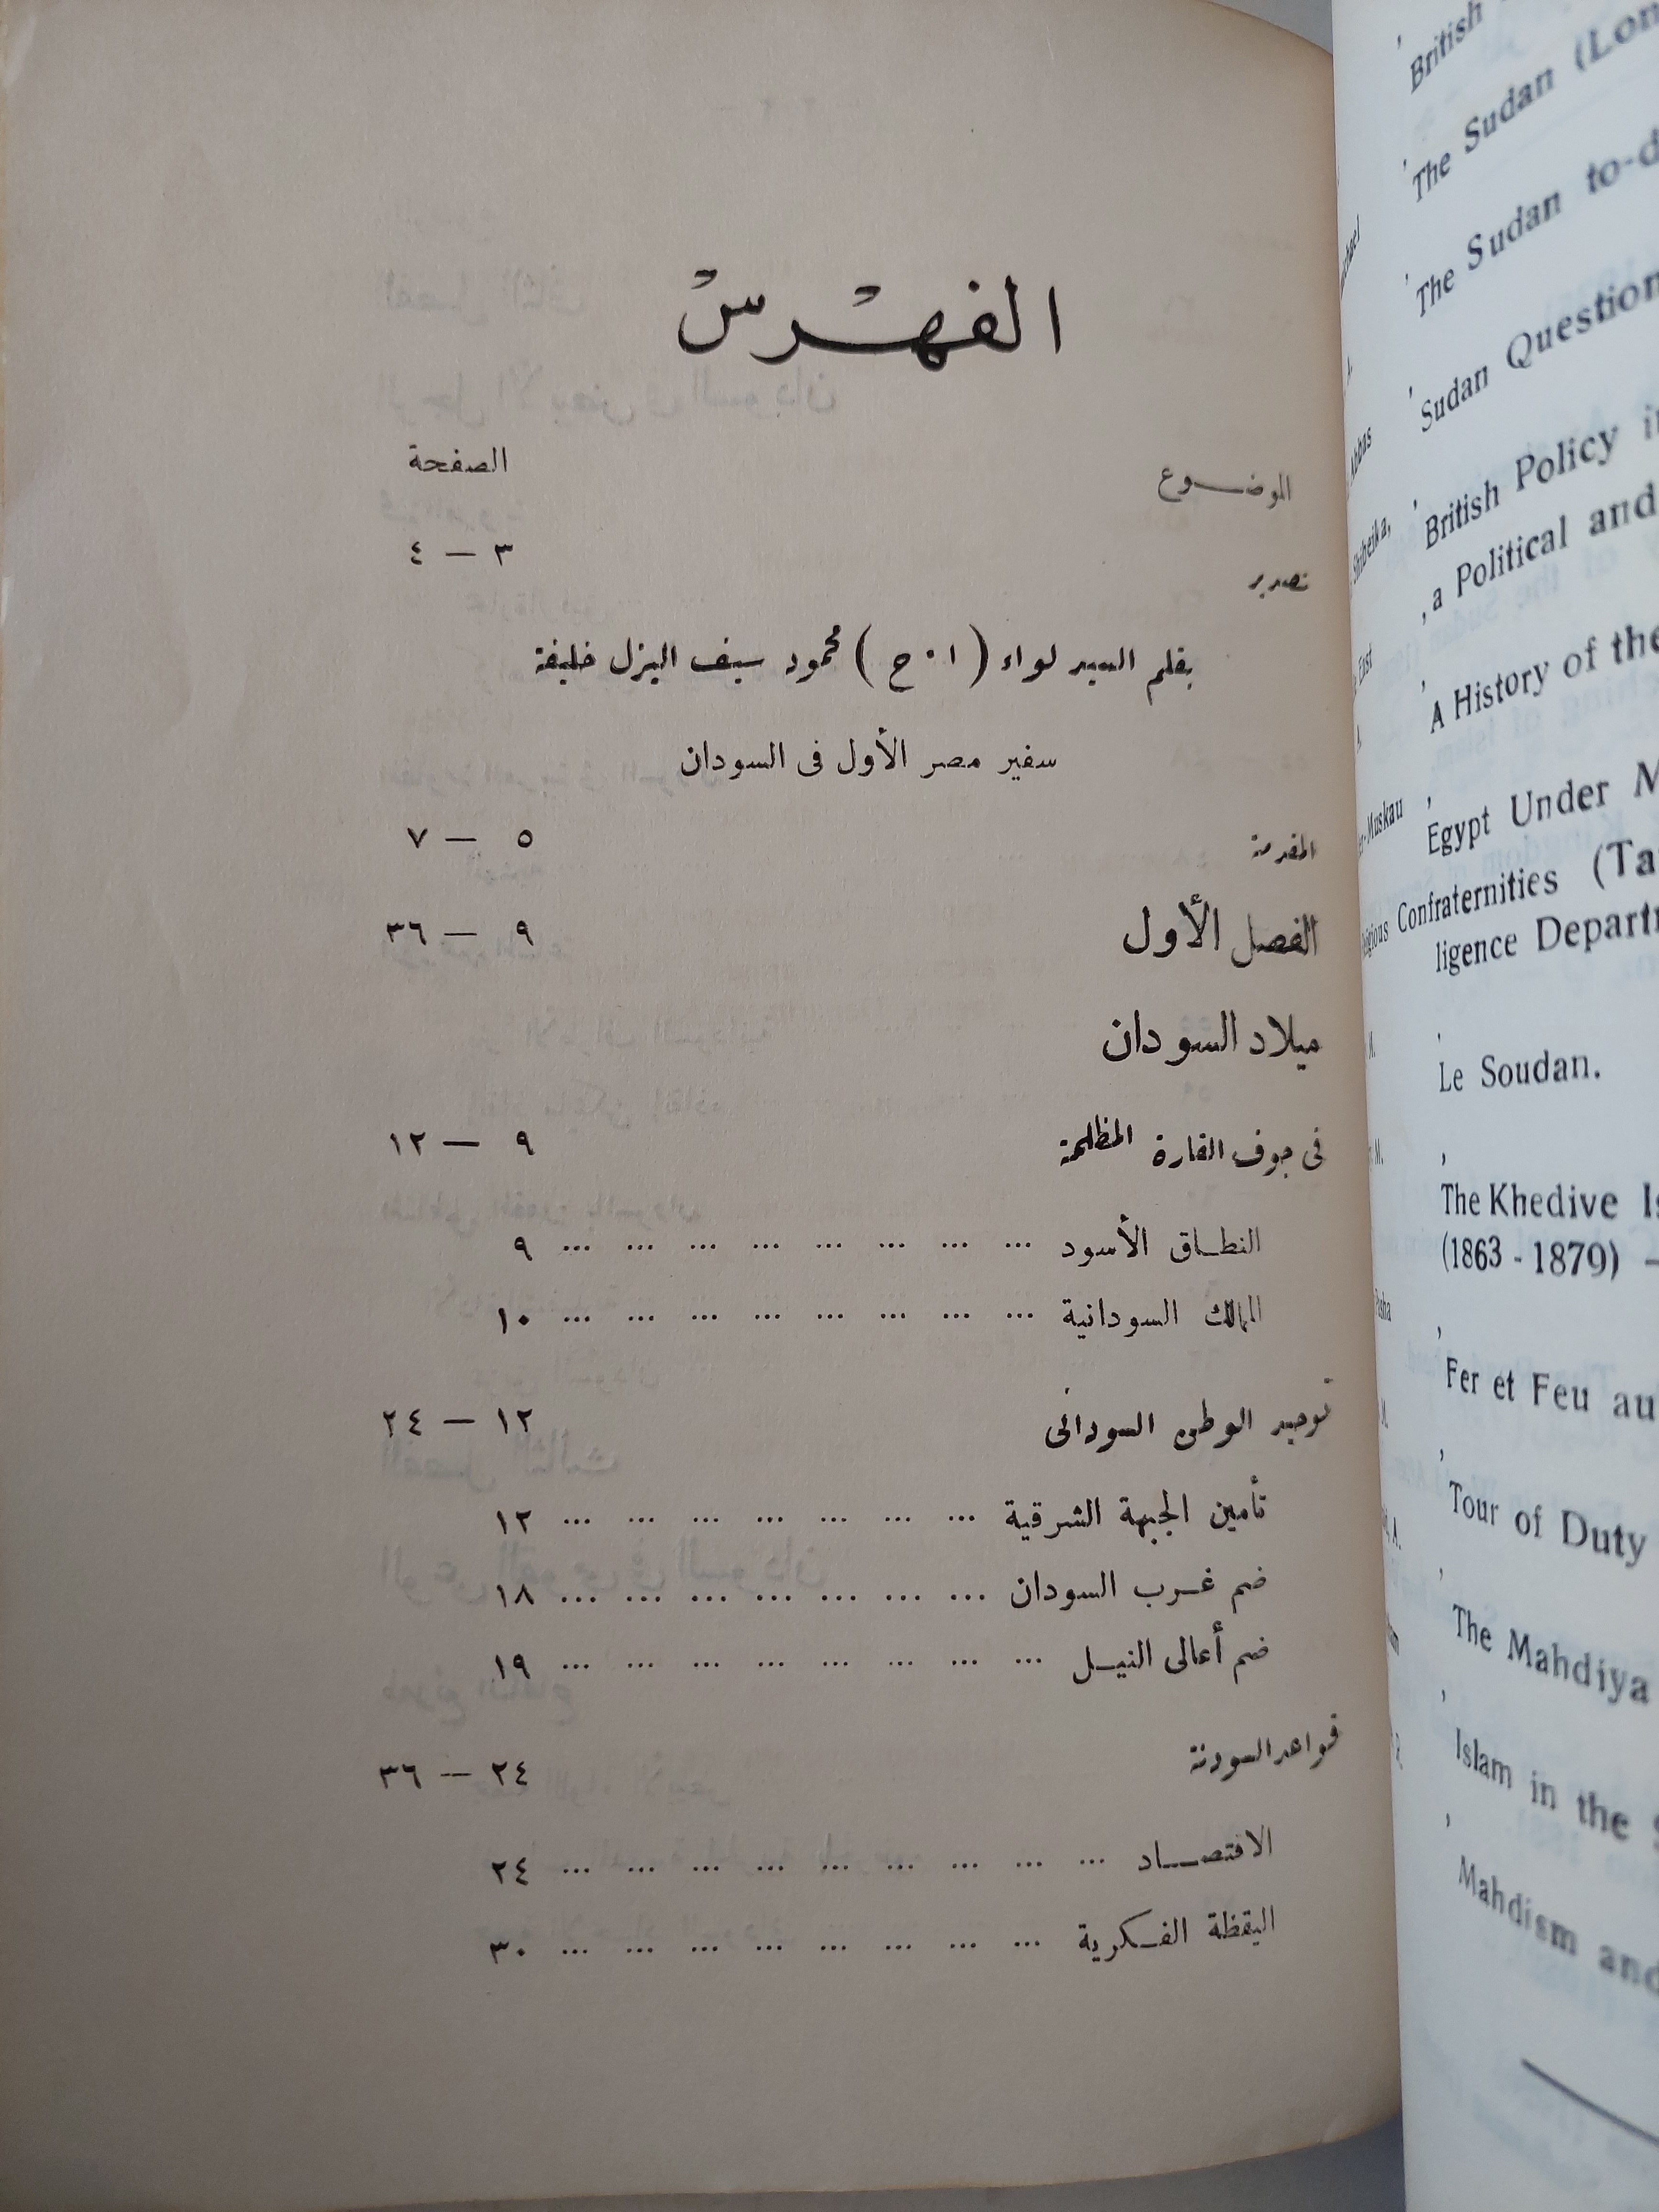 الفهرس
الموضوع الصفحة
تصدير ٣ — ٤
بقلم السيد لواء ( ا . ح ) محمود سيف اليزل خليفة
سفير مصر الأول فى السودان
المقدمة ٥ — ٧
الفصل الأول ٩ — ٣٦
ميلاد السودان
فى جوف القارة المظلمة ٩ — ١٢
النطاق الأسود ... ... ... ... ... ... ... ... ٩
الممالك السودانية ... ... ... ... ... ... ... ... ١٠
توحيد الوطن السودانى ١٢ — ٢٤
تأمين الجبهة الشرقية ... ... ... ... ... ... ... ١٢
ضم غرب السودان ... ... ... ... ... ... ... ١٨
ضم أعالى النيل ... ... ... ... ... ... ... ... ١٩
قواعد السودنة ٢٤ — ٣٦
الاقتصاد ... ... ... ... ... ... ... ... ... ٢٤
اليقظة الفكرية ... ... ... ... ... ... ... ... ٣٠
British
The Sudan (Lon
The Sudan to-d
Sudan Question
Abbas
British Policy i
Shibeika,
a Political and
East
A History of the
er-Muskau
Egypt Under M
Confraternities (Ta
ligence Departm
Le Soudan.
The Khedive Is
(1863 - 1879) —
Pasha
Fer et Feu au
Tour of Duty
The Mahdiya
Islam in the S
Mahdism and